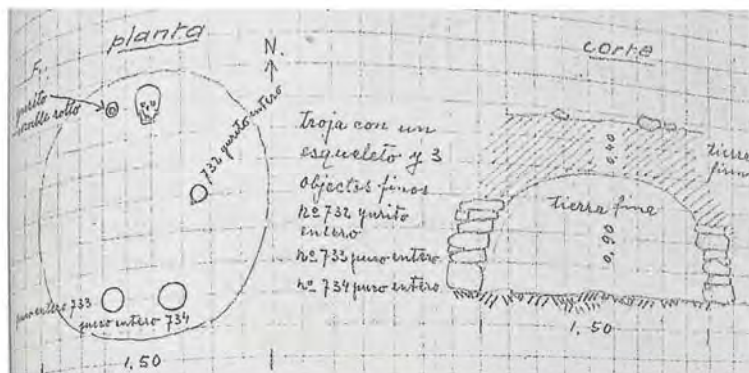 planta
N.
F.
yurito
rotto
732 yurito entero
puro entero 733
puro entero 734
1,50
troja con un
esqueleto y 3
objectos finos
nº 732 yurito
entero
nº 733 puro entero
nº 734 puro entero
corte
0,40
tierra
tierra fina
0,90
1,50